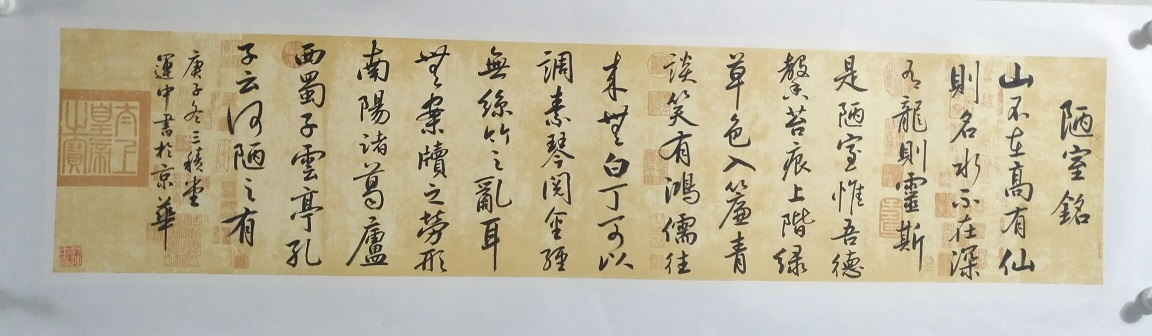 陋室銘
山不在高有仙
則名水不在深
有龍則靈斯
是陋室惟吾德
馨苔痕上階緑
草色入簾青
談笑有鴻儒往
来無白丁可以
調素琴閲金經
無絲竹之亂耳
無案牘之勞形
南陽諸葛廬
西蜀子雲亭孔
子云何陋之有
庚子冬三積堂
運中書於京華
太上
皇帝
之寶